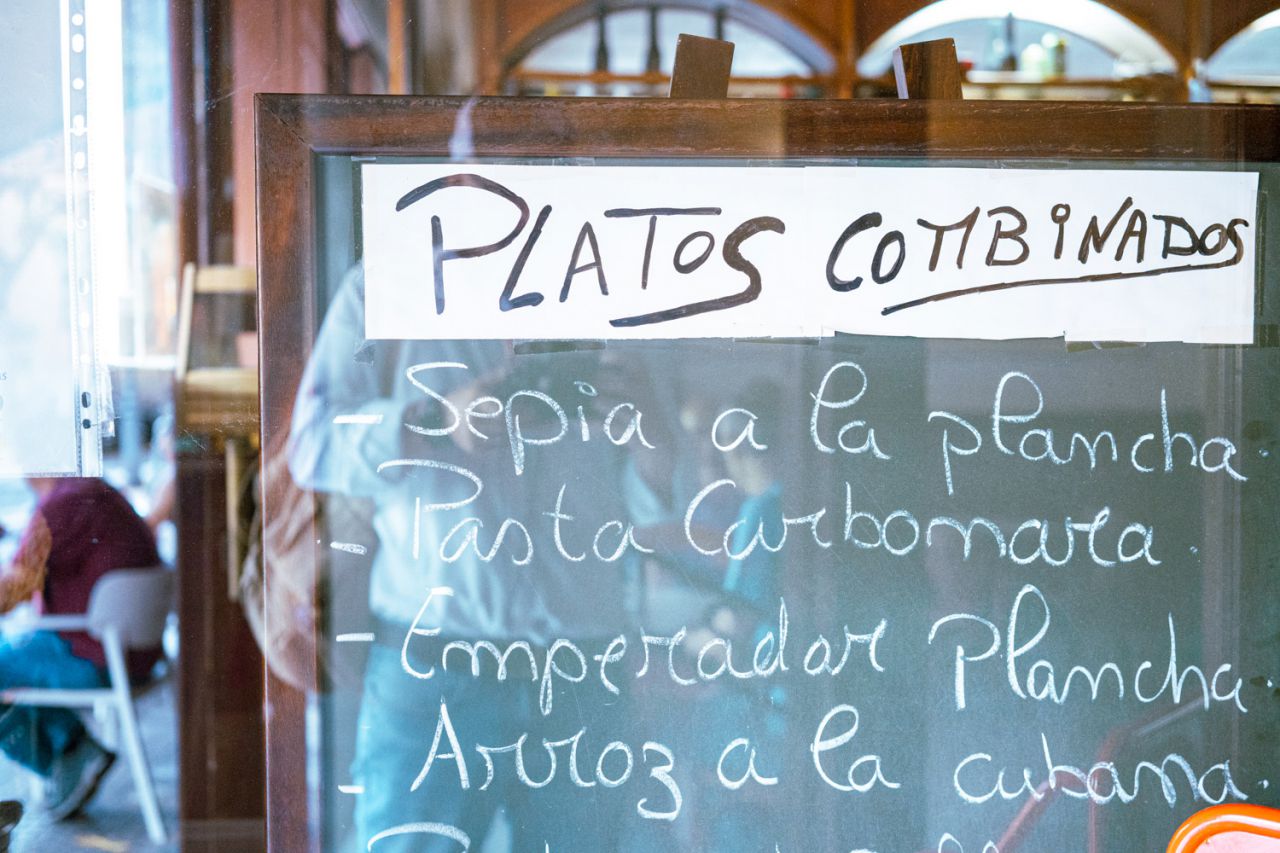 PLATOS COMBINADOS
- Sepia a la plancha.
- Pasta Carbonara.
- Emperador Plancha.
- Arroz a la cubana.